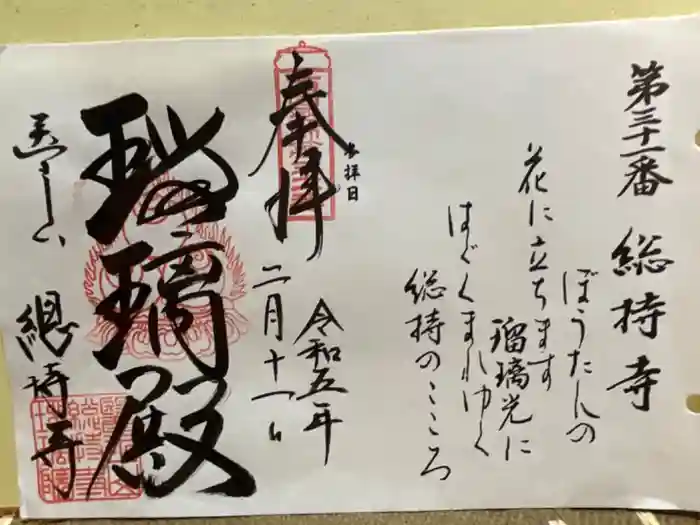 第三十一番 総持寺
ぼうたんの
花に立ちます
瑠璃光に
はぐくまれゆく
総持のこころ
参拝日
奉拝
令和五年
二月十一日
瑠璃殿
總持寺